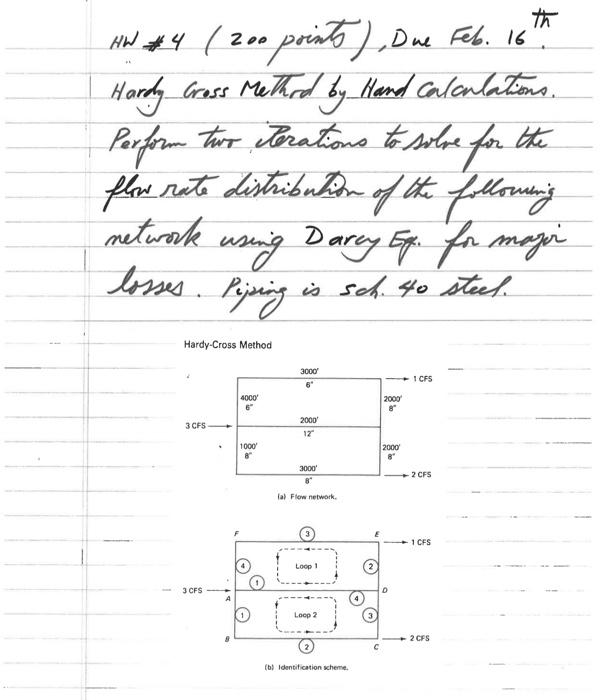 HW #4 (200 points), Due Feb. 16th.
Hardy Cross Method by Hand Calculations.
Perform two iterations to solve for the
flow rate distribution of the following
network using Darcy Eq. for major
losses. Piping is sch. 40 steel.
Hardy-Cross Method
3000'
6"
1 CFS
4000'
6"
2000'
8"
3 CFS
2000'
12"
1000'
8"
2000'
8"
3000'
8"
2 CFS
(a) Flow network.
F
3
E
1 CFS
4
Loop 1
2
1
3 CFS
A
D
4
1
Loop 2
3
B
2
C
2 CFS
(b) Identification scheme.